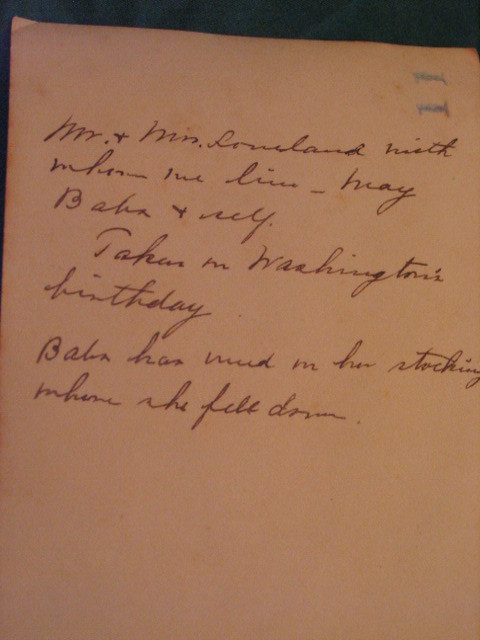 Mr. & Mrs. Loveland with
whom we live – May
Baba & self.
Taken on Washington's
birthday
Baba has mud on her stocking
where she fell down.